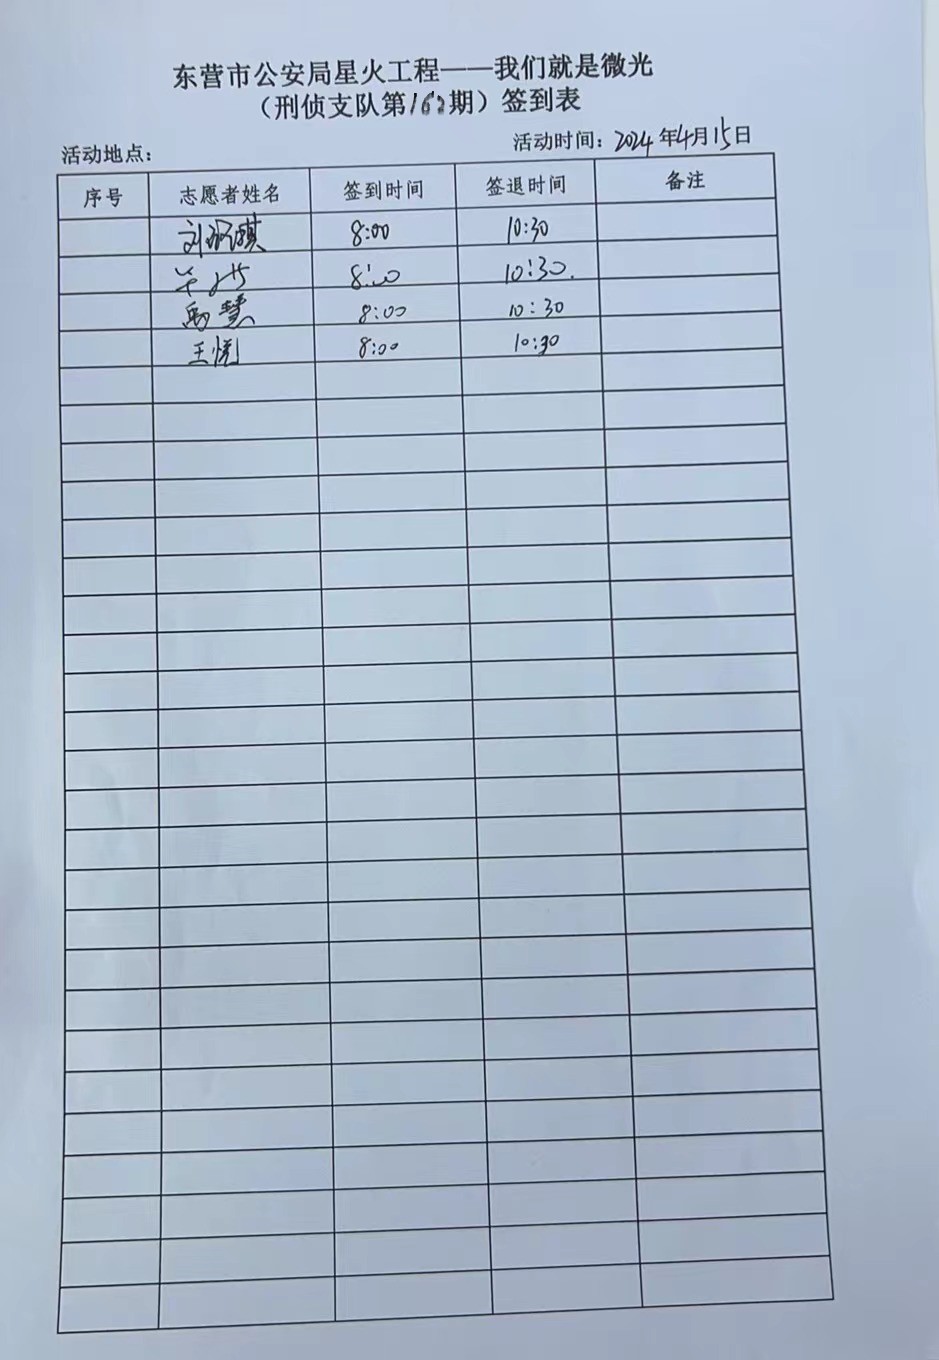 东营市公安局星火工程——我们就是微光
（刑侦支队第162期）签到表
活动地点：
活动时间：2024年4月15日
序号 志愿者姓名 签到时间 签退时间 备注
刘 琪 8:00 10:30
8:00 10:30.
禹慧 8:00 10:30
王悦 8:00 10:30